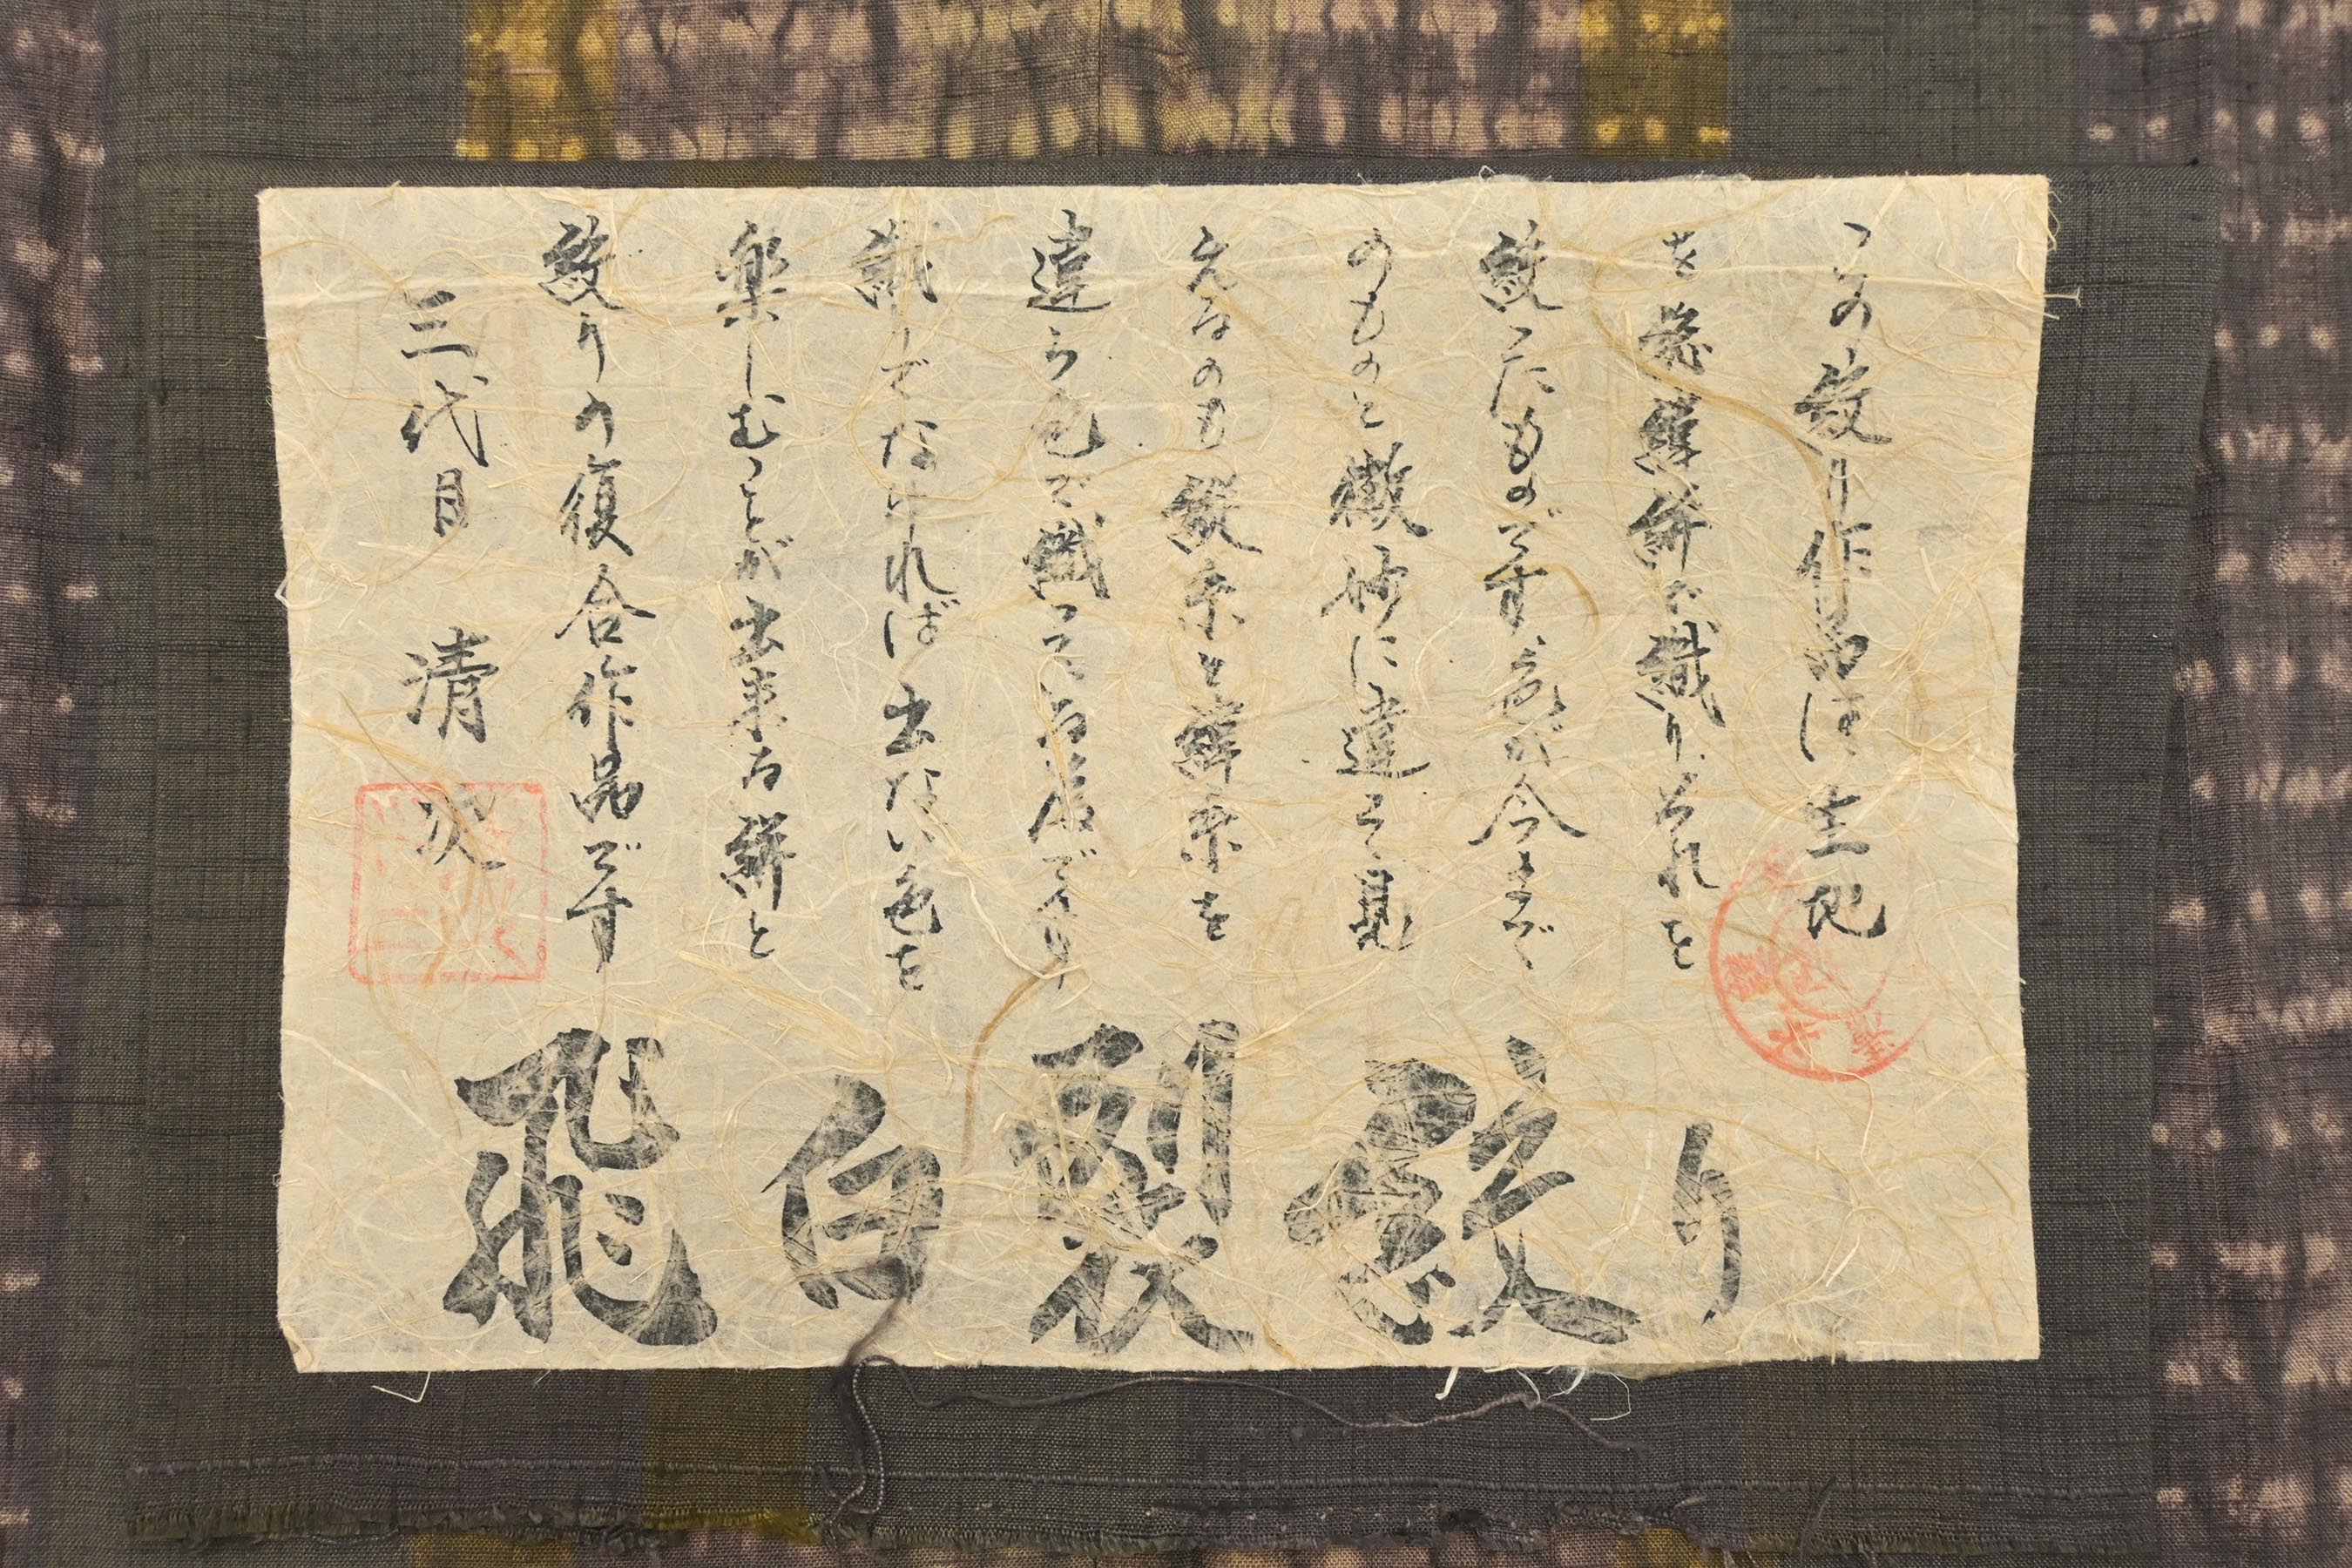 この絞り作品は生地
を急緯絣で織り、それを
絞ったものです、色が今まで
のものと微妙に違って見
えるのも縦糸と緯糸を
違う色で織っている為です
織りでなければ出ない色を
楽しむことが出来る絣と
絞りの復合作品です
三代目 清次
飛白裂絞り